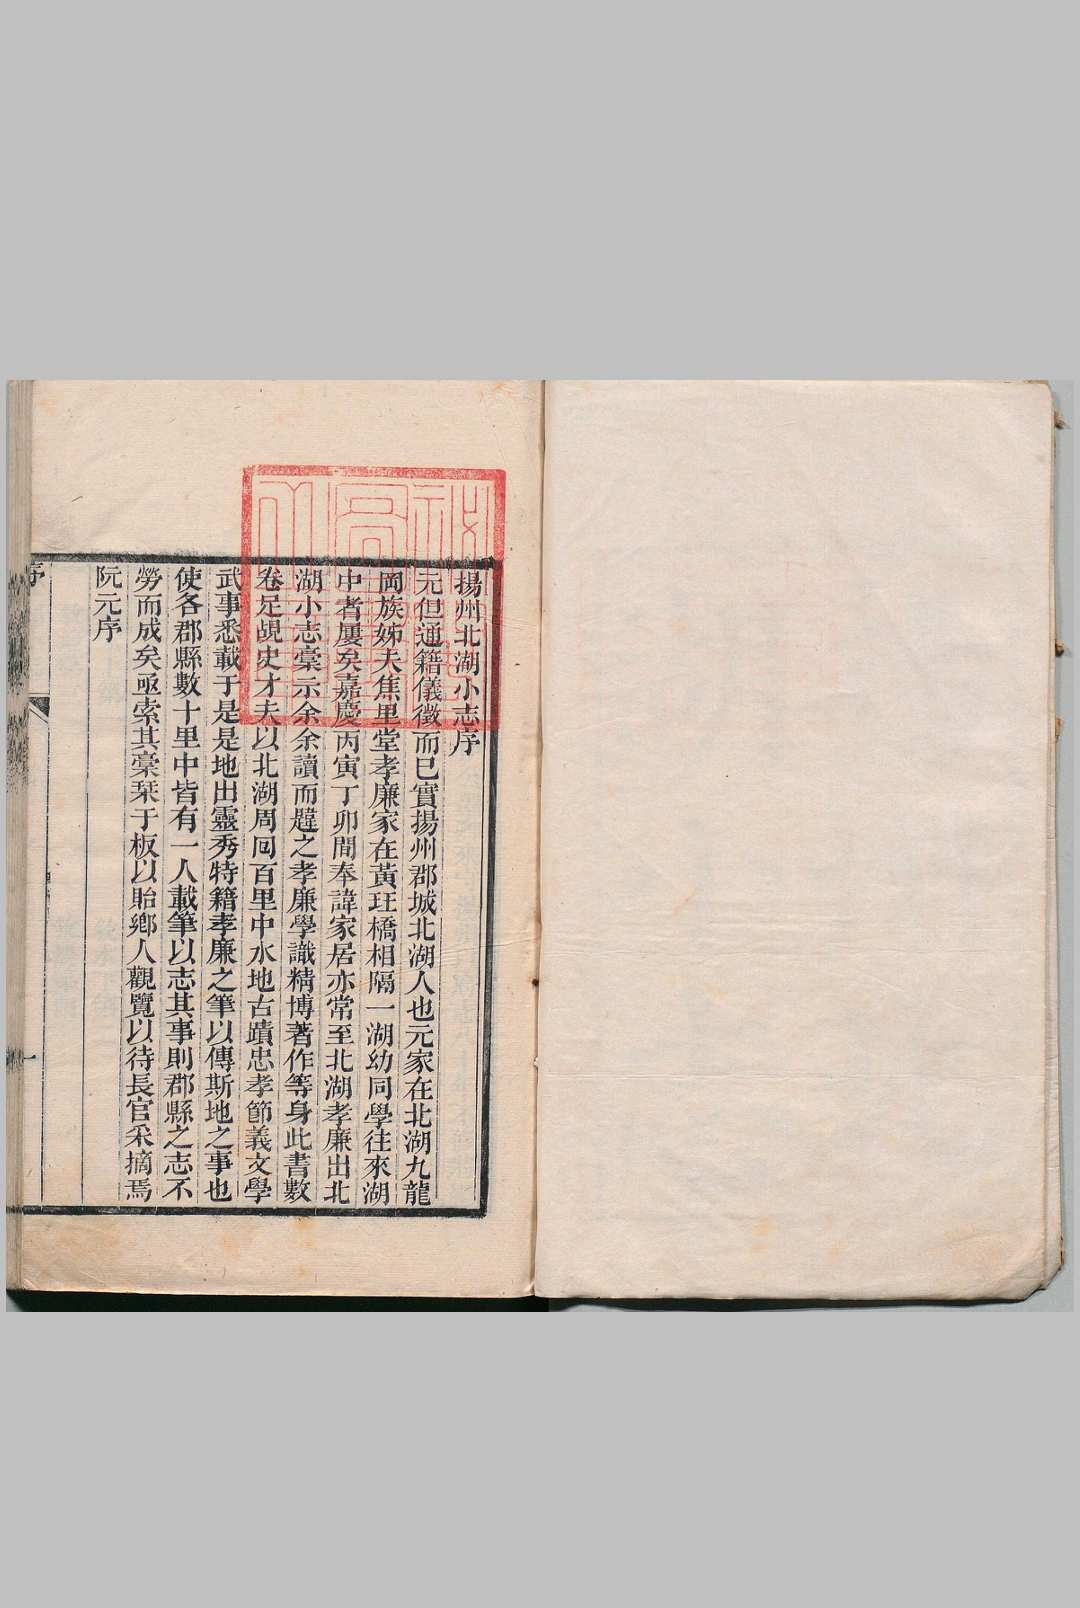 揚州北湖小志序
元但通籍儀徵而已實揚州郡城北湖人也元家在北湖九龍
岡族姊夫焦里堂孝廉家在黃玨橋相隔一湖幼同學往來湖
中者屢矣嘉慶丙寅丁卯間奉諱家居亦常至北湖孝廉出北
湖小志稾示余余讀而韙之孝廉學識精博著作等身此書數
卷足覘史才夫以北湖周回百里中水地古蹟忠孝節義文學
武事悉載于是是地出靈秀特籍孝廉之筆以傳斯地之事也
使各郡縣數十里中皆有一人載筆以志其事則郡縣之志不
勞而成矣亟索其稾栞于板以貽鄉人觀覽以待長官采摘焉
阮元序
序
一